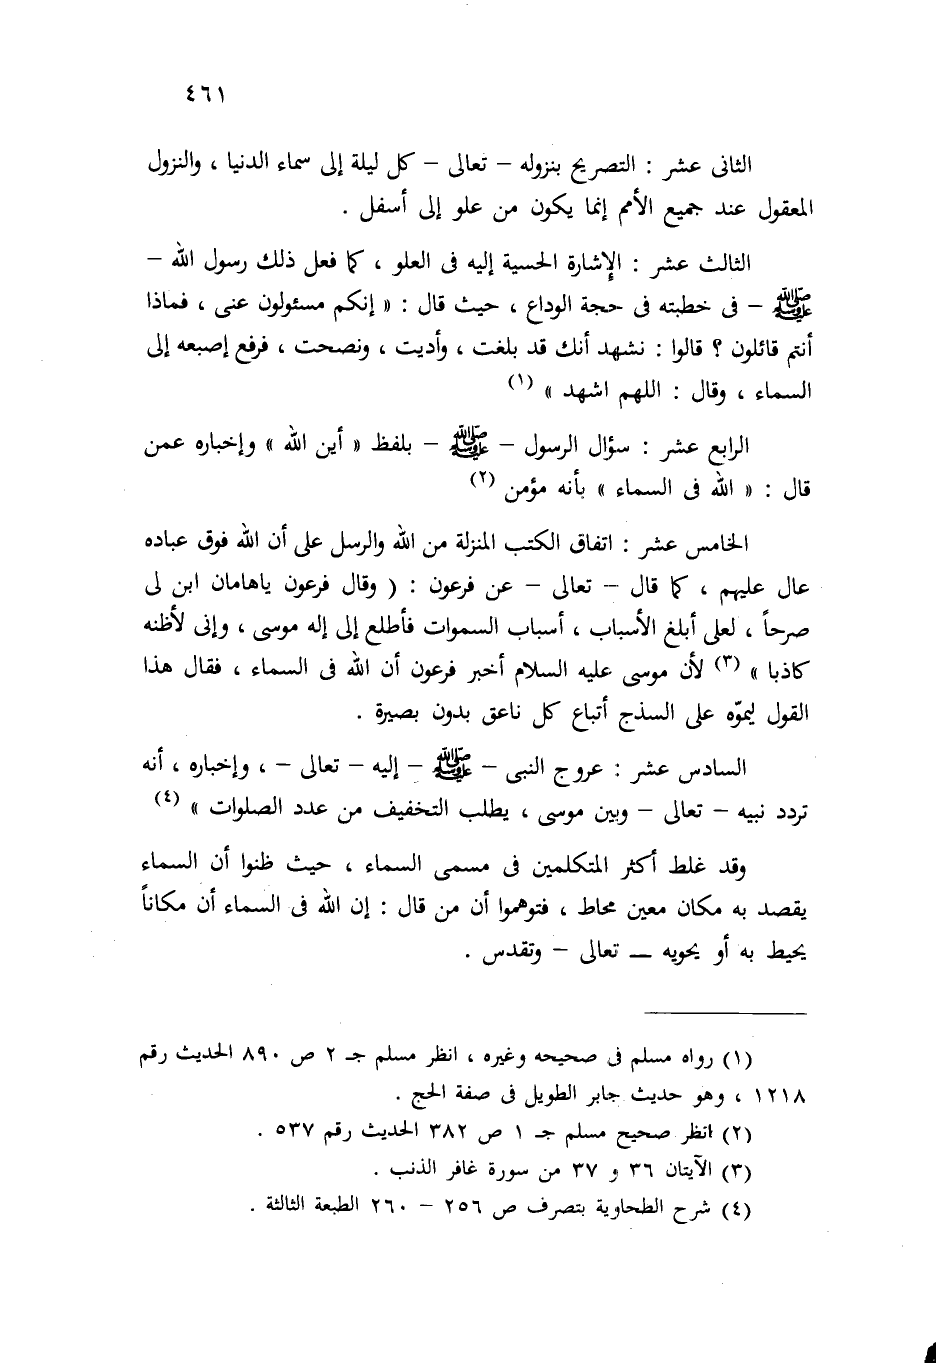 ٤٦١
الثانى عشر : التصريح بنزوله – تعالى – كل ليلة إلى سماء الدنيا ، والنزول
المعقول عند جميع الأمم إنما يكون من علو إلى أسفل .
الثالث عشر : الإشارة الحسية إليه فى العلو ، كما فعل ذلك رسول الله –
ﷺ – فى خطبته فى حجة الوداع ، حيث قال : « إنكم مسئولون عنى ، فماذا
أنتم قائلون ؟ قالوا : نشهد أنك قد بلغت ، وأديت ، ونصحت ، فرفع إصبعه إلى
السماء ، وقال : اللهم اشهد » (١)
الرابع عشر : سؤال الرسول – ﷺ – بلفظ « أين الله » وإخباره عمن
قال : « الله فى السماء » بأنه مؤمن (٢)
الخامس عشر : اتفاق الكتب المنزلة من الله والرسل على أن الله فوق عباده
عال عليهم ، كما قال – تعالى – عن فرعون : ( وقال فرعون ياهامان ابن لى
صرحاً ، لعلى أبلغ الأسباب ، أسباب السموات فأطلع إلى إله موسى ، وإنى لأظنه
كاذبا » (٣) لأن موسى عليه السلام أخبر فرعون أن الله فى السماء ، فقال هذا
القول ليموّه على السذج أتباع كل ناعق بدون بصيرة .
السادس عشر : عروج النبى – ﷺ – إليه – تعالى – ، وإخباره ، أنه
تردد نبيه – تعالى – وبين موسى ، يطلب التخفيف من عدد الصلوات » (٤)
وقد غلط أكثر المتكلمين فى مسمى السماء ، حيث ظنوا أن السماء
يقصد به مكان معين محاط ، فتوهموا أن من قال : إن الله فى السماء أن مكاناً
يحيط به أو يحويه – تعالى – وتقدس .
(١) رواه مسلم فى صحيحه وغيره ، انظر مسلم جـ ٢ ص ٨٩٠ الحديث رقم
١٢١٨ ، وهو حديث جابر الطويل فى صفة الحج .
(٢) انظر صحيح مسلم جـ ١ ص ٣٨٢ الحديث رقم ٥٣٧ .
(٣) الآيتان ٣٦ و ٣٧ من سورة غافر الذنب .
(٤) شرح الطحاوية بتصرف ص ٢٥٦ – ٢٦٠ الطبعة الثالثة .